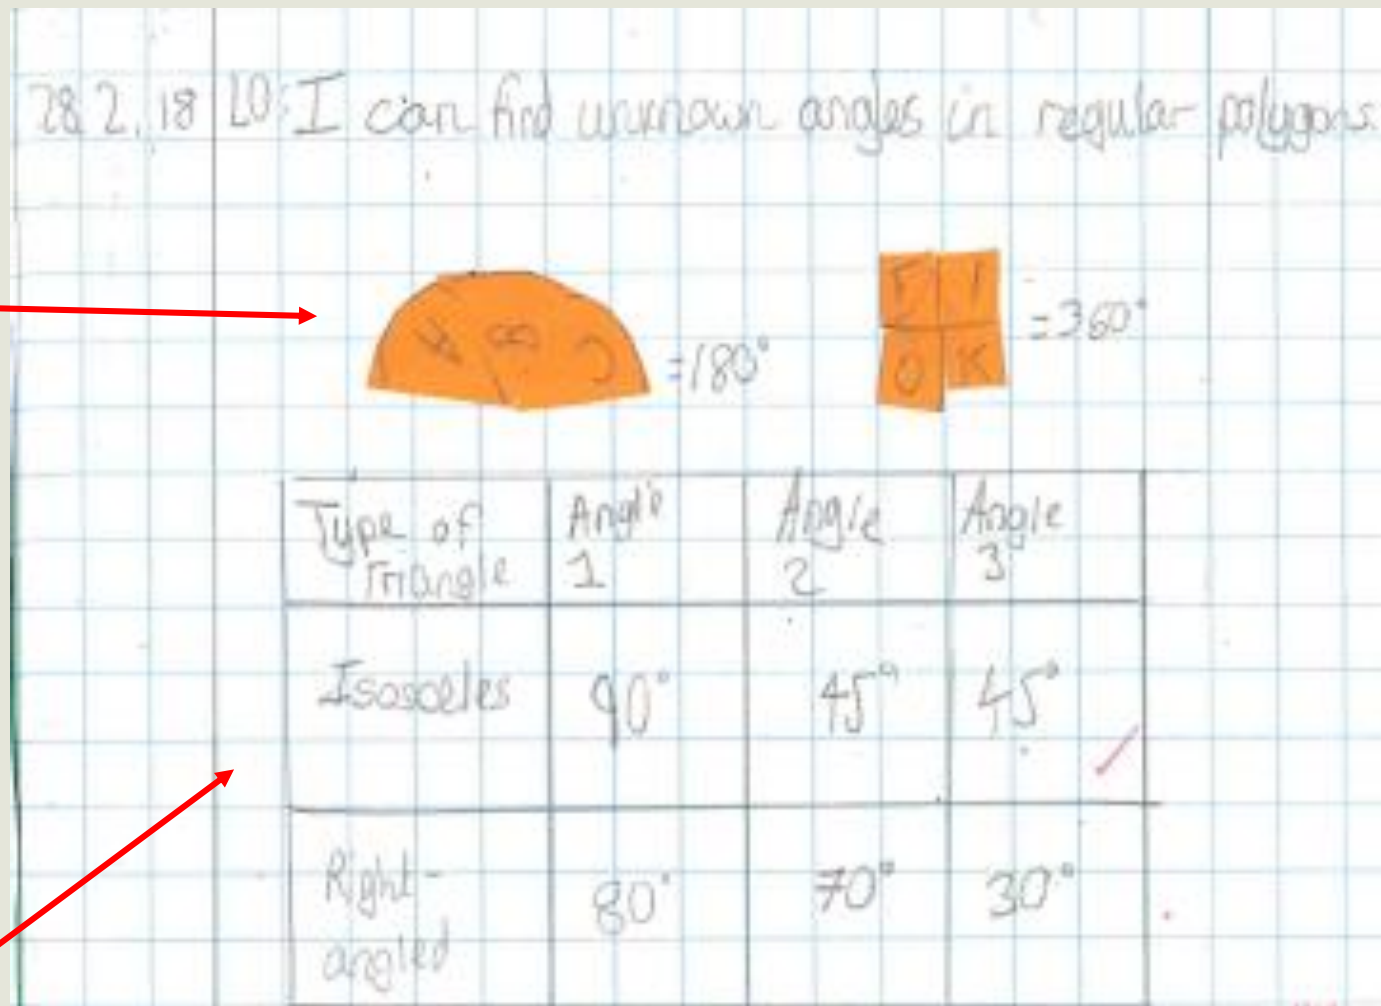 28.2.18 LO: I can find unknown angles in regular polygons.
A B C =180°
F I
O K
=360°
Type of Triangle Angle 1 Angle 2 Angle 3
Isosceles 90° 45° 45°
Right-angled 80° 70° 30°